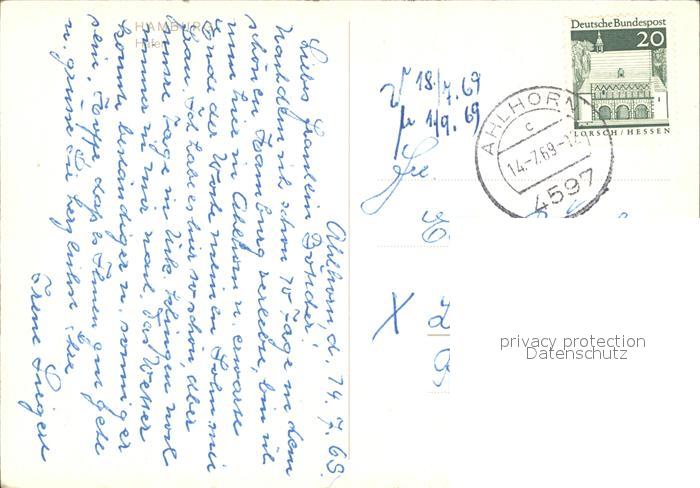 HAMBURG
Hafen
Ahlhorn, d. 14. 7. 69.
Liebes Fräulein
Nachdem ich schon 10 Tage in dem
schönen Hamburg verlebte, bin ich
nun hier in Ahlhorn u. erwarte
Ende der Woche meinen Sohn mit
Frau. Ich habe es hier so schön, aber
Tage in
immer nur nach. Das Wetter
könnte beständiger u. sonniger
sein. Hoffe daß es Ihnen gut geht
u. grüße Sie herzlichst Ihre
Irene
18/7.69
1/9.69
X
Deutsche Bundespost
20
LORSCH / HESSEN
AHLHORN
c
14.-7.69-12
4597
privacy protection
Datenschutz